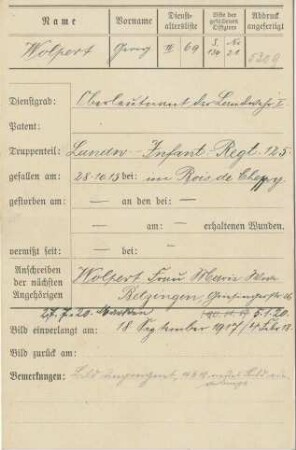 Name Vorname Dienst-altersliste Liste der gefallenen Offiziere Abdruck angefertigt
Wolpert Georg II 69 S. 134 No 21 5209
Dienstgrad: Oberleutnant der Landwehr I
Patent:
Truppenteil: Landw. Infant. Regt. 125
gefallen am: 28.10.15 bei: im Bois de Cheppy
gestorben am: — an den bei: —
— am: — erhaltenen Wunden.
vermißt seit: — bei: —
Anschreiben der nächsten Angehörigen
Wolpert Frau Marie
27.7.20. 5.1.20.
Bild einverlangt am: 18 September 1917
Bild zurück am:
Bemerkungen: